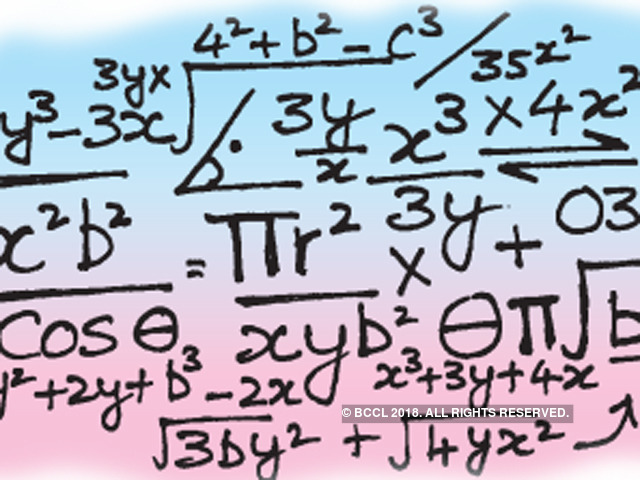 4² + b² - c³ / 35x²
3yx
y³ - 3x √ 3y/x x³ × 4x²
3y + 03
x²b² = πr² ×
cos θ xyb² θπ√b
y² + 2y + b³ - 2x x³ + 3y + 4x
© BCCL 2018. ALL RIGHTS RESERVED.
√3by² + √4yx²